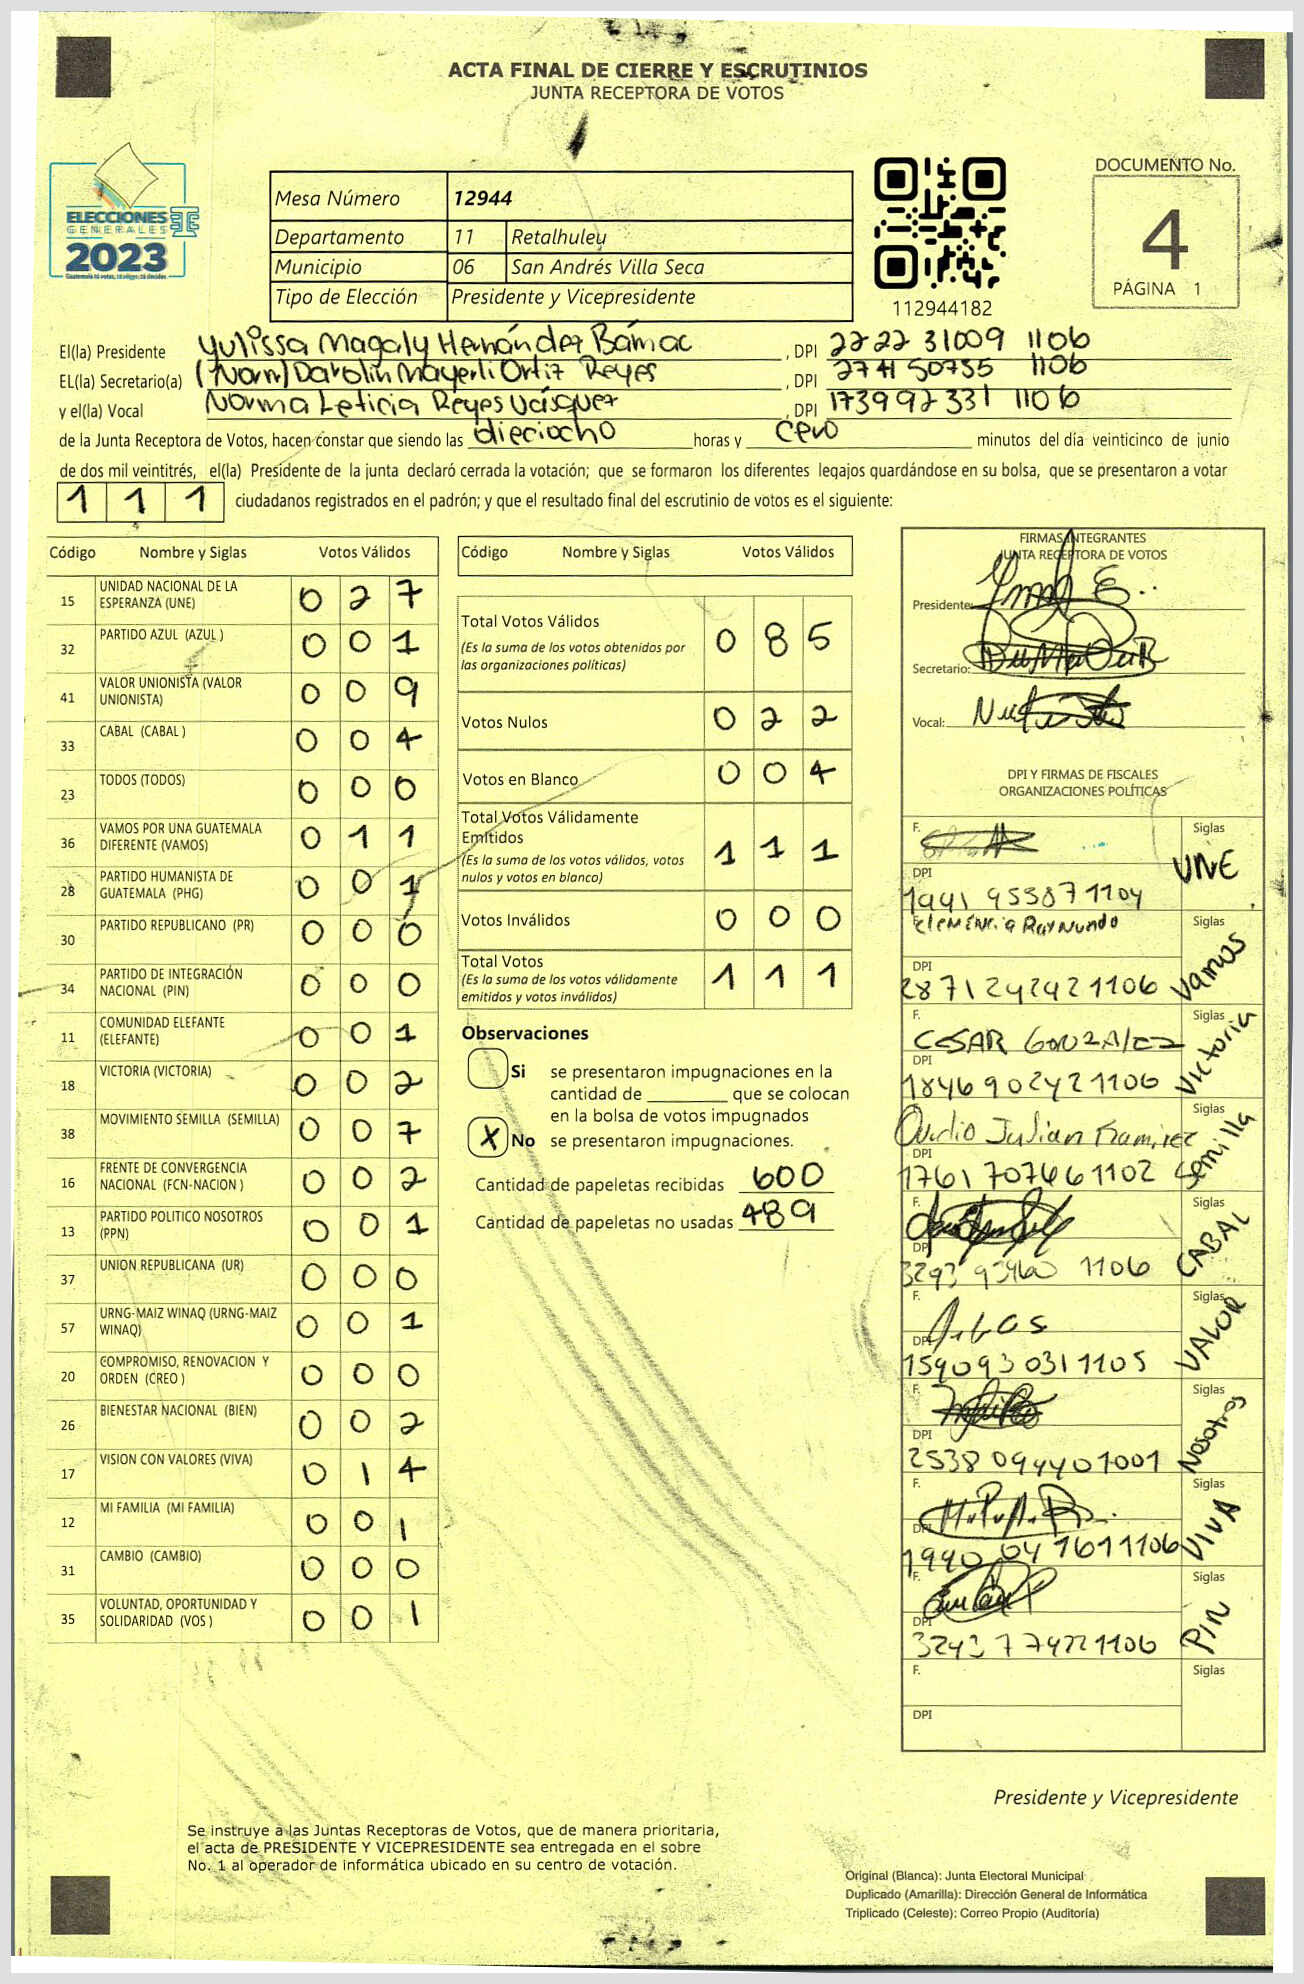 ACTA FINAL DE CIERRE Y ESCRUTINIOS
JUNTA RECEPTORA DE VOTOS
ELECCIONES
GENERALES
2023
Mesa Número 12944
Departamento 11 Retalhuleu
Municipio 06 San Andrés Villa Seca
Tipo de Elección Presidente y Vicepresidente
112944182
DOCUMENTO No.
4
PÁGINA 1
El(la) Presidente Yulissa Magaly Hernández Bámac , DPI 2222 31009 1106
EL(la) Secretario(a) (Norm) Darolin Mayerli Ortiz Reyes , DPI 2741 50735 1106
y el(la) Vocal Norma Leticia Reyes Vásquez , DPI 1739 92331 1106
de la Junta Receptora de Votos, hacen constar que siendo las dieciocho horas y cero minutos del día veinticinco de junio
de dos mil veintitrés, el(la) Presidente de la junta declaró cerrada la votación; que se formaron los diferentes legajos guardándose en su bolsa, que se presentaron a votar
1 1 1 ciudadanos registrados en el padrón; y que el resultado final del escrutinio de votos es el siguiente:
Código Nombre y Siglas Votos Válidos
15 UNIDAD NACIONAL DE LA ESPERANZA (UNE) 0 2 7
32 PARTIDO AZUL (AZUL ) 0 0 1
41 VALOR UNIONISTA (VALOR UNIONISTA) 0 0 9
33 CABAL (CABAL ) 0 0 4
23 TODOS (TODOS) 0 0 0
36 VAMOS POR UNA GUATEMALA DIFERENTE (VAMOS) 0 1 1
28 PARTIDO HUMANISTA DE GUATEMALA (PHG) 0 0 1
30 PARTIDO REPUBLICANO (PR) 0 0 0
34 PARTIDO DE INTEGRACIÓN NACIONAL (PIN) 0 0 0
11 COMUNIDAD ELEFANTE (ELEFANTE) 0 0 1
18 VICTORIA (VICTORIA) 0 0 2
38 MOVIMIENTO SEMILLA (SEMILLA) 0 0 7
16 FRENTE DE CONVERGENCIA NACIONAL (FCN-NACION ) 0 0 2
13 PARTIDO POLITICO NOSOTROS (PPN) 0 0 1
37 UNION REPUBLICANA (UR) 0 0 0
57 URNG-MAIZ WINAQ (URNG-MAIZ WINAQ) 0 0 1
20 COMPROMISO, RENOVACION Y ORDEN (CREO ) 0 0 0
26 BIENESTAR NACIONAL (BIEN) 0 0 2
17 VISION CON VALORES (VIVA) 0 1 4
12 MI FAMILIA (MI FAMILIA) 0 0 1
31 CAMBIO (CAMBIO) 0 0 0
35 VOLUNTAD, OPORTUNIDAD Y SOLIDARIDAD (VOS ) 0 0 1
Código Nombre y Siglas Votos Válidos
Total Votos Válidos 0 8 5
(Es la suma de los votos obtenidos por
las organizaciones políticas)
Votos Nulos 0 2 2
Votos en Blanco 0 0 4
Total Votos Válidamente
Emitidos 1 1 1
(Es la suma de los votos válidos, votos
nulos y votos en blanco)
Votos Inválidos 0 0 0
Total Votos 1 1 1
(Es la suma de los votos válidamente
emitidos y votos inválidos)
Observaciones
Si se presentaron impugnaciones en la
cantidad de ________ que se colocan
en la bolsa de votos impugnados
X No se presentaron impugnaciones.
Cantidad de papeletas recibidas 600
Cantidad de papeletas no usadas 489
FIRMAS INTEGRANTES
JUNTA RECEPTORA DE VOTOS
Presidente:
Secretario:
Vocal:
DPI Y FIRMAS DE FISCALES
ORGANIZACIONES POLÍTICAS
F. Siglas UNE
DPI 1991 95587 1104
F. Clemencia Raymundo Siglas Vamos
DPI 2871 24242 1106
F. CESAR GONZALEZ Siglas Victoria
DPI 1846 90242 1106
F. Ovidio Julian Ramirez Siglas Semilla
DPI 1761 70746 1102
F. Siglas CABAL
DPI 3293 93460 1106
F. Siglas VALOR
DPI 1590 93031 1105
F. Siglas Nosotros
DPI 2538 09440 1001
F. Siglas VIVA
DPI 1990 04761 1106
F. Siglas PIN
DPI 3243 77422 1106
F. Siglas
DPI
Presidente y Vicepresidente
Se instruye a las Juntas Receptoras de Votos, que de manera prioritaria,
el acta de PRESIDENTE Y VICEPRESIDENTE sea entregada en el sobre
No. 1 al operador de informática ubicado en su centro de votación.
Original (Blanca): Junta Electoral Municipal
Duplicado (Amarilla): Dirección General de Informática
Triplicado (Celeste): Correo Propio (Auditoría)